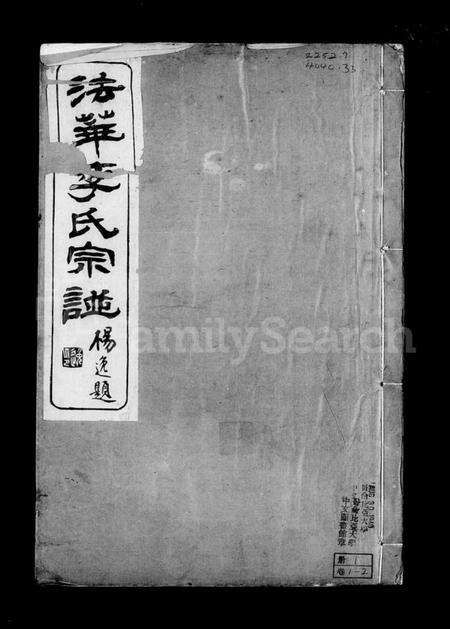 2252.9
4040.33
法華李氏宗譜
楊逸題
FamilySearch
哥倫比亞大學
中文圖書館藏
冊 1
卷 1-2